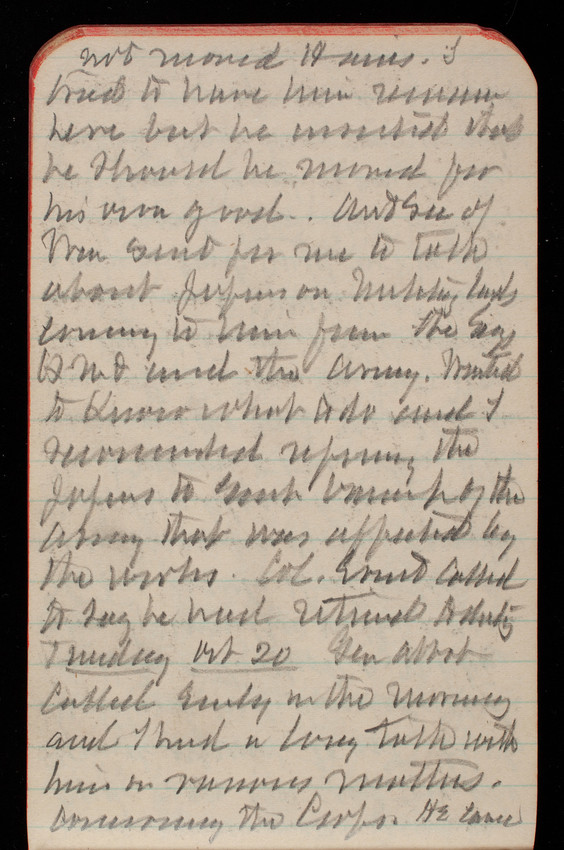 not moved Hains. I
tried to have him remain
here but he insisted that
he should be moved for
his own good. And Sec of
War sent for me to talk
about papers on Military lands
coming to him from the Eng
and the Army. Wanted
to know what to do and I
recommended referring the
papers to such branch of the
army that was affected by
the works. Col. Ernst called
to say he had returned to duty
Tuesday Oct 20 Gen Abbot
called early in the morning
and I had a long talk with
him on various matters.
concerning the Corps. He